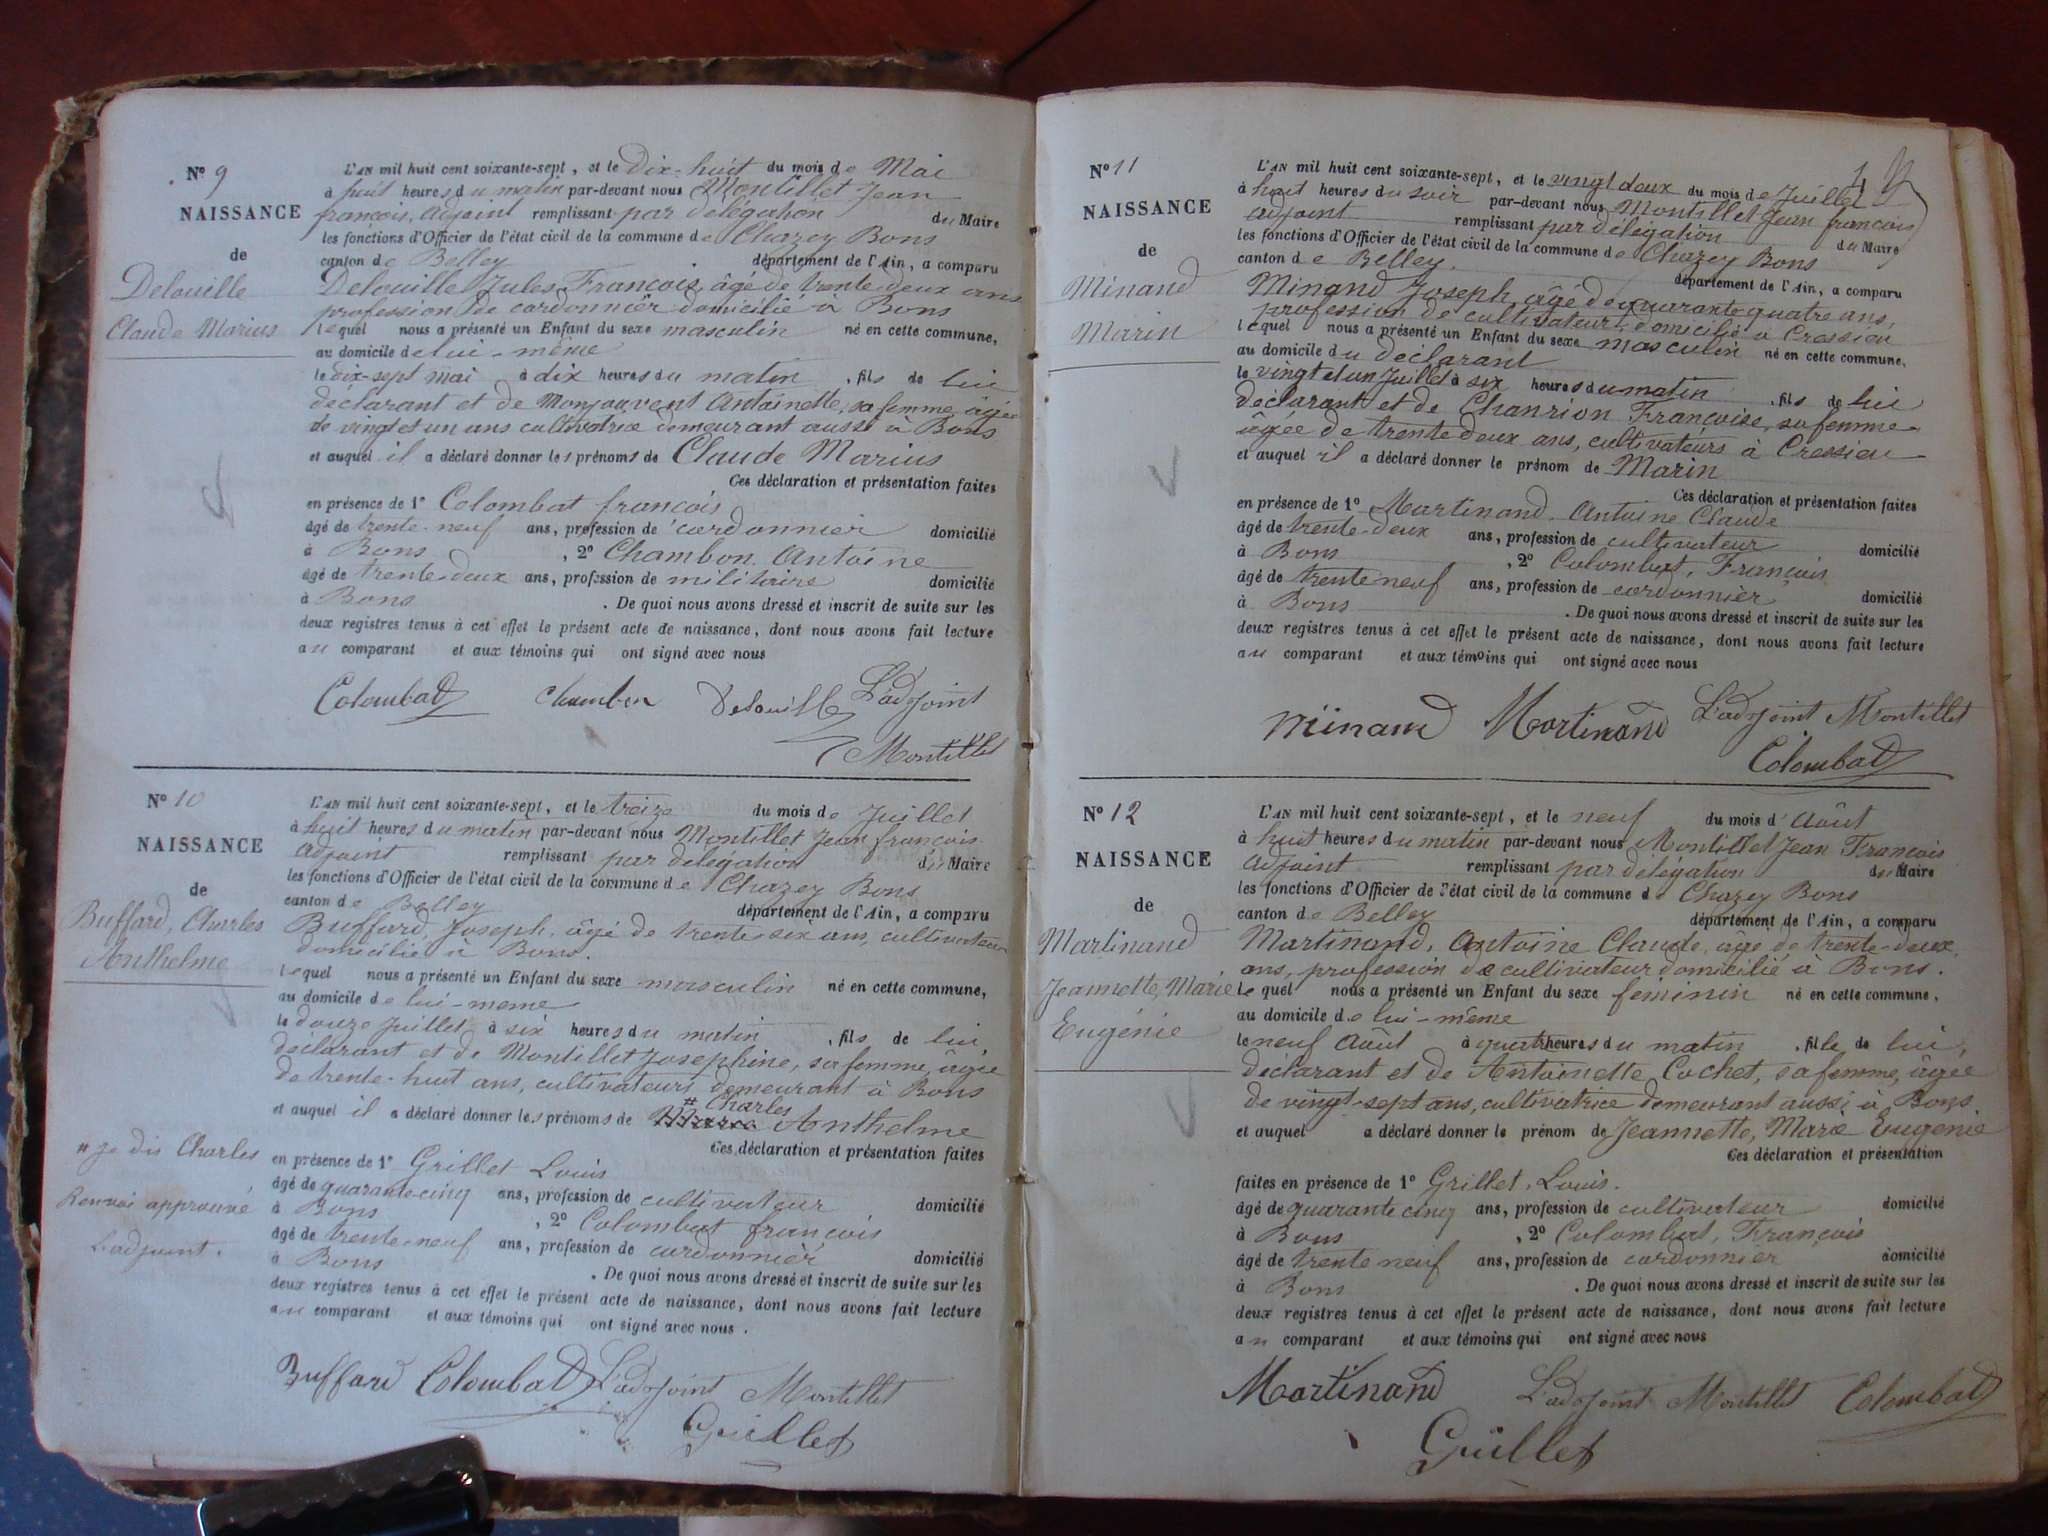 Nº 9
NAISSANCE
de
Delouille
Claude Marius
L'AN mil huit cent soixante-sept, et le Dix-huit du mois de Mai
à huit heures du matin par-devant nous Montillet Jean
françois, Adjoint remplissant par délégation du Maire
les fonctions d'Officier de l'état civil de la commune de Chazey Bons
canton de Belley département de l'Ain, a comparu
Delouille Jules François, âgé de trente deux ans
profession de cordonnier domicilié à Bons
lequel nous a présenté un Enfant du sexe masculin né en cette commune,
au domicile de lui-même
le dix-sept mai à dix heures du matin, fils de lui
déclarant et de Monjouvent Antoinette, sa femme, âgée
de vingt et un ans cultivatrice demeurant aussi à Bons
et auquel il a déclaré donner les prénoms de Claude Marius
Ces déclaration et présentation faites
en présence de 1º Colombat françois
âgé de trente-neuf ans, profession de cordonnier domicilié
à Bons, 2º Chambon Antoine
âgé de trente-deux ans, profession de militaire domicilié
à Bons. De quoi nous avons dressé et inscrit de suite sur les
deux registres tenus à cet effet le présent acte de naissance, dont nous avons fait lecture
au comparant et aux témoins qui ont signé avec nous
Colombat Chambon Delouille L'adjoint
Montillet
Nº 10
NAISSANCE
de
Buffard, Charles
Anthelme
L'AN mil huit cent soixante-sept, et le treize du mois de Juillet
à huit heures du matin par-devant nous Montillet Jean françois
Adjoint remplissant par délégation du Maire
les fonctions d'Officier de l'état civil de la commune de Chazey Bons
canton de Belley département de l'Ain, a comparu
Buffard, Joseph, âgé de trente six ans, cultivateur
domicilié à Bons.
lequel nous a présenté un Enfant du sexe masculin né en cette commune,
au domicile de lui-meme
le douze Juillet à six heures du matin, fils de lui,
déclarant et de Montillet Josephine, sa femme, âgée
de trente-huit ans, cultivateurs demeurant à Bons
# Charles
et auquel il a déclaré donner les prénoms de Anthelme
Ces déclaration et présentation faites
# je dis Charles
Renvoi approuvé
L'adjoint.
en présence de 1º Grillet Louis
âgé de quarante-cinq ans, profession de cultivateur domicilié
à Bons, 2º Colombat françois
âgé de trente-neuf ans, profession de cordonnier domicilié
à Bons. De quoi nous avons dressé et inscrit de suite sur les
deux registres tenus à cet effet le présent acte de naissance, dont nous avons fait lecture
au comparant et aux témoins qui ont signé avec nous.
Buffard Colombat L'adjoint Montillet
Grillet
Nº 11
NAISSANCE
de
Minand
Marin
4
L'AN mil huit cent soixante-sept, et le vingt deux du mois de Juillet
à huit heures du soir par-devant nous Montillet Jean françois
Adjoint remplissant par délégation du Maire
les fonctions d'Officier de l'état civil de la commune de Chazey Bons
canton de Belley. département de l'Ain, a comparu
Minand Joseph, âgé de quarante quatre ans,
profession de cultivateur, domicilié à Cressieu
lequel nous a présenté un Enfant du sexe masculin né en cette commune,
au domicile du déclarant
le vingt et un Juillet à six heures du matin, fils de lui
déclarant et de Chanrion Françoise, sa femme
âgée de trente deux ans, cultivateurs à Cressieu
et auquel il a déclaré donner le prénom de Marin
Ces déclaration et présentation faites
en présence de 1º Martinand Antoine Claude
âgé de trente-deux ans, profession de cultivateur domicilié
à Bons, 2º Colombat, François
âgé de trente neuf ans, profession de cordonnier domicilié
à Bons. De quoi nous avons dressé et inscrit de suite sur les
deux registres tenus à cet effet le présent acte de naissance, dont nous avons fait lecture
au comparant et aux témoins qui ont signé avec nous
Minand Martinand L'adjoint Montillet
Colombat
Nº 12
NAISSANCE
de
Martinand
Jeannette, Marie
Eugénie
L'AN mil huit cent soixante-sept, et le neuf du mois d'Août
à huit heures du matin par-devant nous Montillet Jean François
Adjoint remplissant par délégation du Maire
les fonctions d'Officier de l'état civil de la commune de Chazey Bons
canton de Belley département de l'Ain, a comparu
Martinand, Antoine Claude, âgé de trente-deux
ans, profession de cultivateur domicilié à Bons.
lequel nous a présenté un Enfant du sexe féminin né en cette commune,
au domicile de lui-même
le neuf Août à quatre heures du matin, fille de lui,
déclarant et de Antoinette Cochet, sa femme, âgée
de vingt-sept ans, cultivatrice demeurant aussi à Bons
et auquel a déclaré donner le prénom de Jeannette, Marie Eugénie
Ces déclaration et présentation
faites en présence de 1º Grillet, Louis.
âgé de quarante cinq ans, profession de cultivateur domicilié
à Bons, 2º Colombat, François
âgé de trente neuf ans, profession de cordonnier domicilié
à Bons. De quoi nous avons dressé et inscrit de suite sur les
deux registres tenus à cet effet le présent acte de naissance, dont nous avons fait lecture
au comparant et aux témoins qui ont signé avec nous
Martinand L'adjoint Montillet Colombat
Grillet